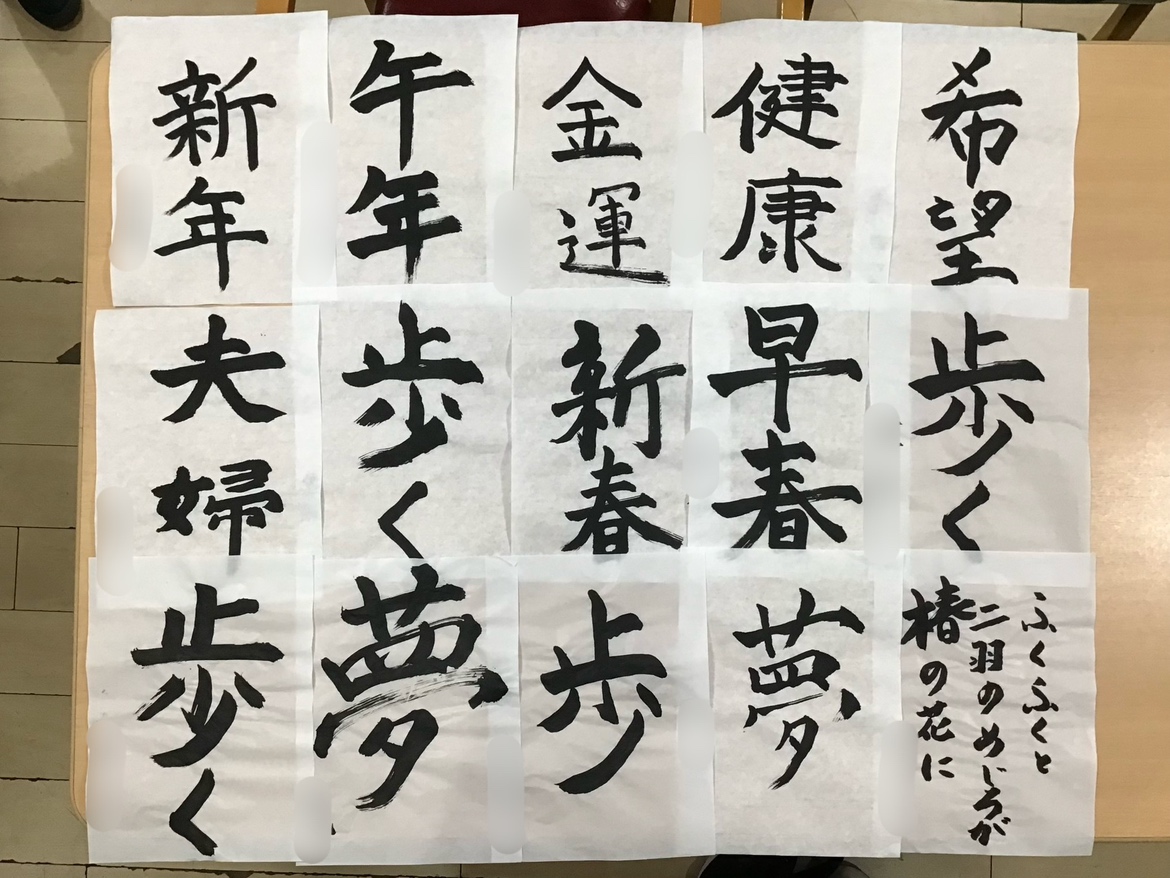 新年
午年
金運
健康
希望
夫婦
歩く
新春
早春
歩く
歩く
夢
歩
夢
ふくふくと
二羽のめじろが
椿の花に